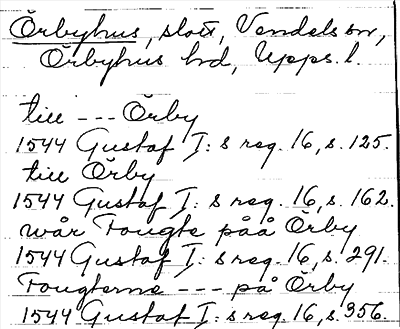 Örbyhus, slott, Vendels sn,
Örbyhus hd, Upps. l.
till --- Örby
1544 Gustaf I: s reg. 16, s. 125.
till Örby
1544 Gustaf I: s reg. 16, s. 162.
wår Fougte påå Örby
1544 Gustaf I: s reg. 16, s. 291.
Fougterne --- på Örby
1544 Gustaf I: s reg. 16, s. 356.